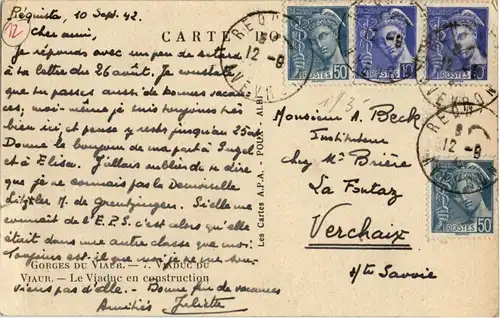 12
Réquista, 10 Sept. 42
Cher ami,
Je réponds avec un peu de retard
à ta lettre du 26 août. Je constate
que tu passes aussi de bonnes vacan-
ces, moi-même je suis toujours très
bien ici et pense y rester jusqu'au 25
Donne le bonjour de ma part à
et à Elisa. J'allais oublier de te dire
que je ne connais pas la Demoiselle
M. de Grentzingen. Si elle me
connait de l'E.P.S. c'est alors qu'elle
était dans une autre classe que moi.
Toujours est-il que moi je ne me sou-
viens pas d'elle. - Bonne fin de vacances
Amitiés Juliette
GORGES DU VIAUR. — VIADUC DU
VIAUR. — Le Viaduc en construction
CARTE
Les Cartes A.P.A. - POUX - ALBI
POSTES 50
POSTES 10
POSTES
POSTES 50
12 -9
AVEYRON
Monsieur A. Beck
Instituteur
chez Mr Brière
La Fontaz
Verchaix
Hte Savoie